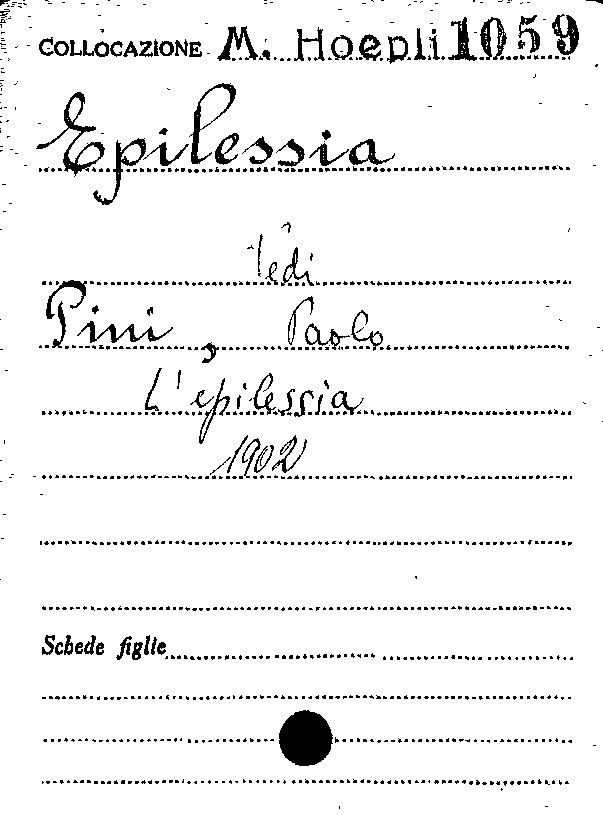 COLLOCAZIONE M. Hoepli 1059
Epilessia
Vedi
Pini, Paolo
L'epilessia
1902
Schede figlie